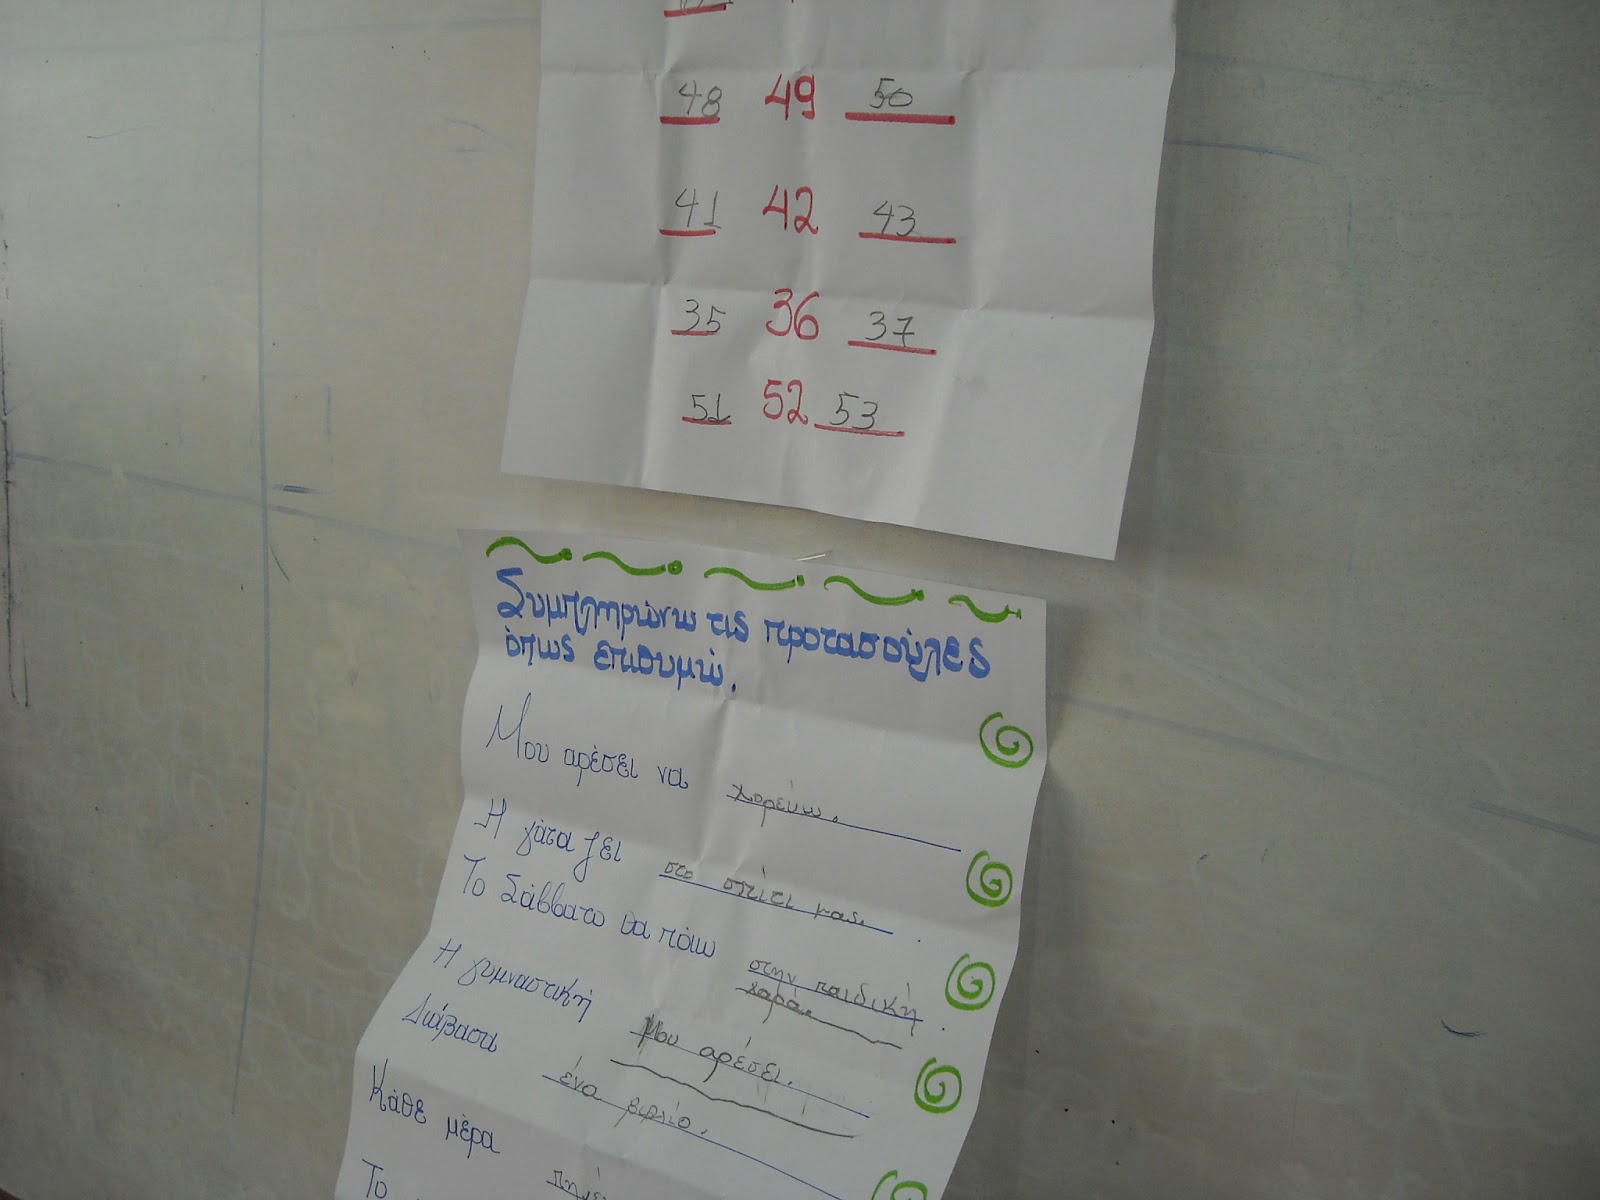 48 49 50
41 42 43
35 36 37
51 52 53
Συμπληρώνω τις προτασούλες
όπως επιθυμώ.
Μου αρέσει να χορεύω.
Η γάτα ζει στο σπίτι μας.
Το Σάββατο θα πάω στην παιδική
χαρά.
Η γυμναστική Μου αρέσει.
Διάβασα ένα βιβλίο.
Κάθε μέρα
Το